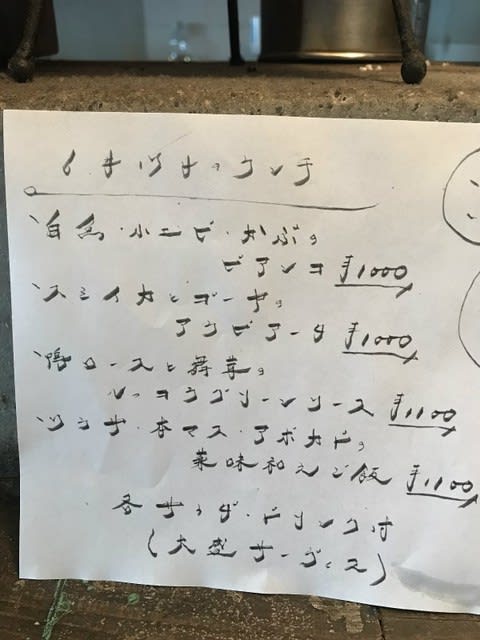 ランチ
白魚・小エビ・かぶの
ビアンコ ¥1000
スミイカとゴーヤの
アラビアータ ¥1000
鴨ロースと舞茸の
クリームソース ¥1100
本マス・アボカドの
薬味和えご飯 ¥1100
各サラダ・ドリンク付
(大盛サービス)